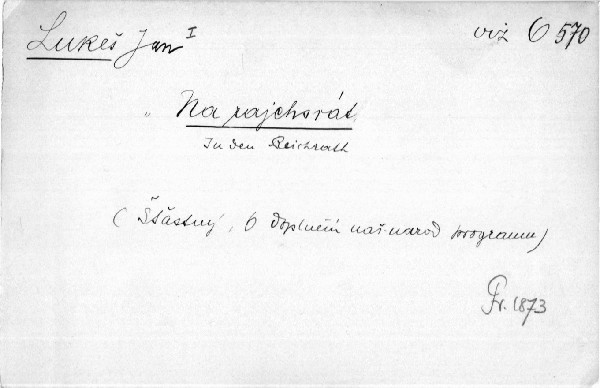 Lukeš Jan I viz 6570
Na rajchsrát
In den Reichrath
(Šťástný, O doplnění naš. národ programu)
Pr. 1873